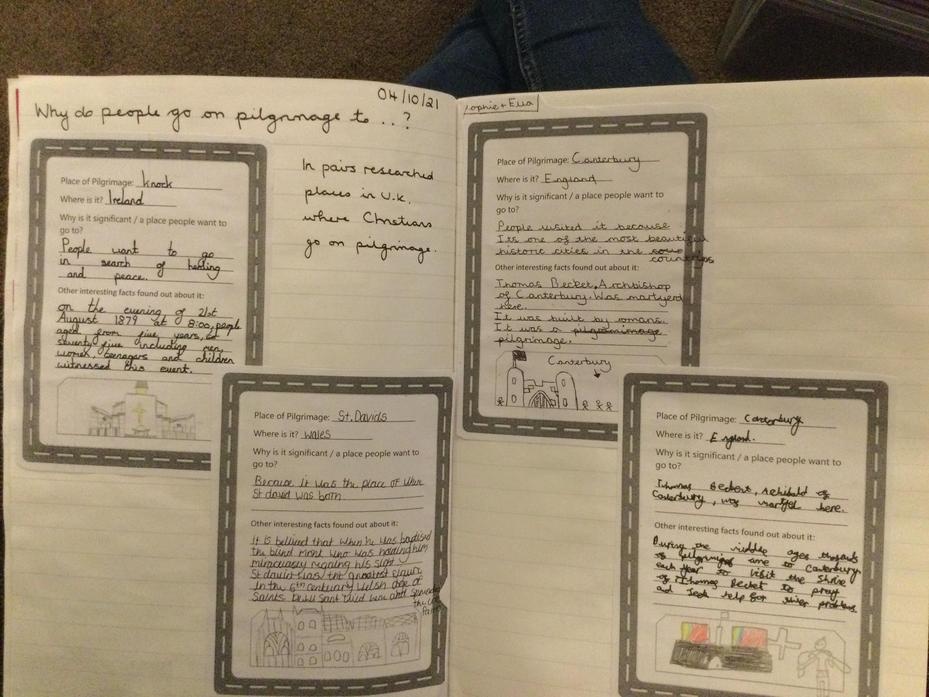 04/10/21
Why do people go on pilgrimage to ...?
Place of Pilgrimage: Knock
Where is it? Ireland
Why is it significant / a place people want to
go to?
People want to go
in search of healing
and peace.
Other interesting facts found out about it:
on the evening of 21st
August 1879 at 8:00, people
aged from five years, to
seventy five including men,
women, teenagers and children
witnessed this event.
In pairs researched
places in U.K.
where Christians
go on pilgrimage.
Place of Pilgrimage: St. Davids
Where is it? Wales
Why is it significant / a place people want to
go to?
Because it was the place of when
St david was born
Other interesting facts found out about it:
It is believed that when he was baptised
the blind monk who was holding him
his sight
St david was the greatest
In the 6th century Welsh age of
Saints Dewi Sant died here and spreaded
the
Sophie + Ella
Place of Pilgrimage: Canterbury
Where is it? England
Why is it significant / a place people want to
go to?
People visited it because
Its one of the most beautiful
historic cities in the
countries
Other interesting facts found out about it:
Thomas Becket, Archbishop
of Canterbury. Was martyerd
here.
It was built by romans.
It was a
pilgrimage.
Canterbury
Place of Pilgrimage: Canterbury
Where is it? England.
Why is it significant / a place people want to
go to?
Thomas Beckert, Achibald of
Canterbury, was martyd here.
Other interesting facts found out about it:
During the middle ages
of to Canterbury
each year to visit the Shrine
of Thomas Becket to pray
and seek help for their problems.